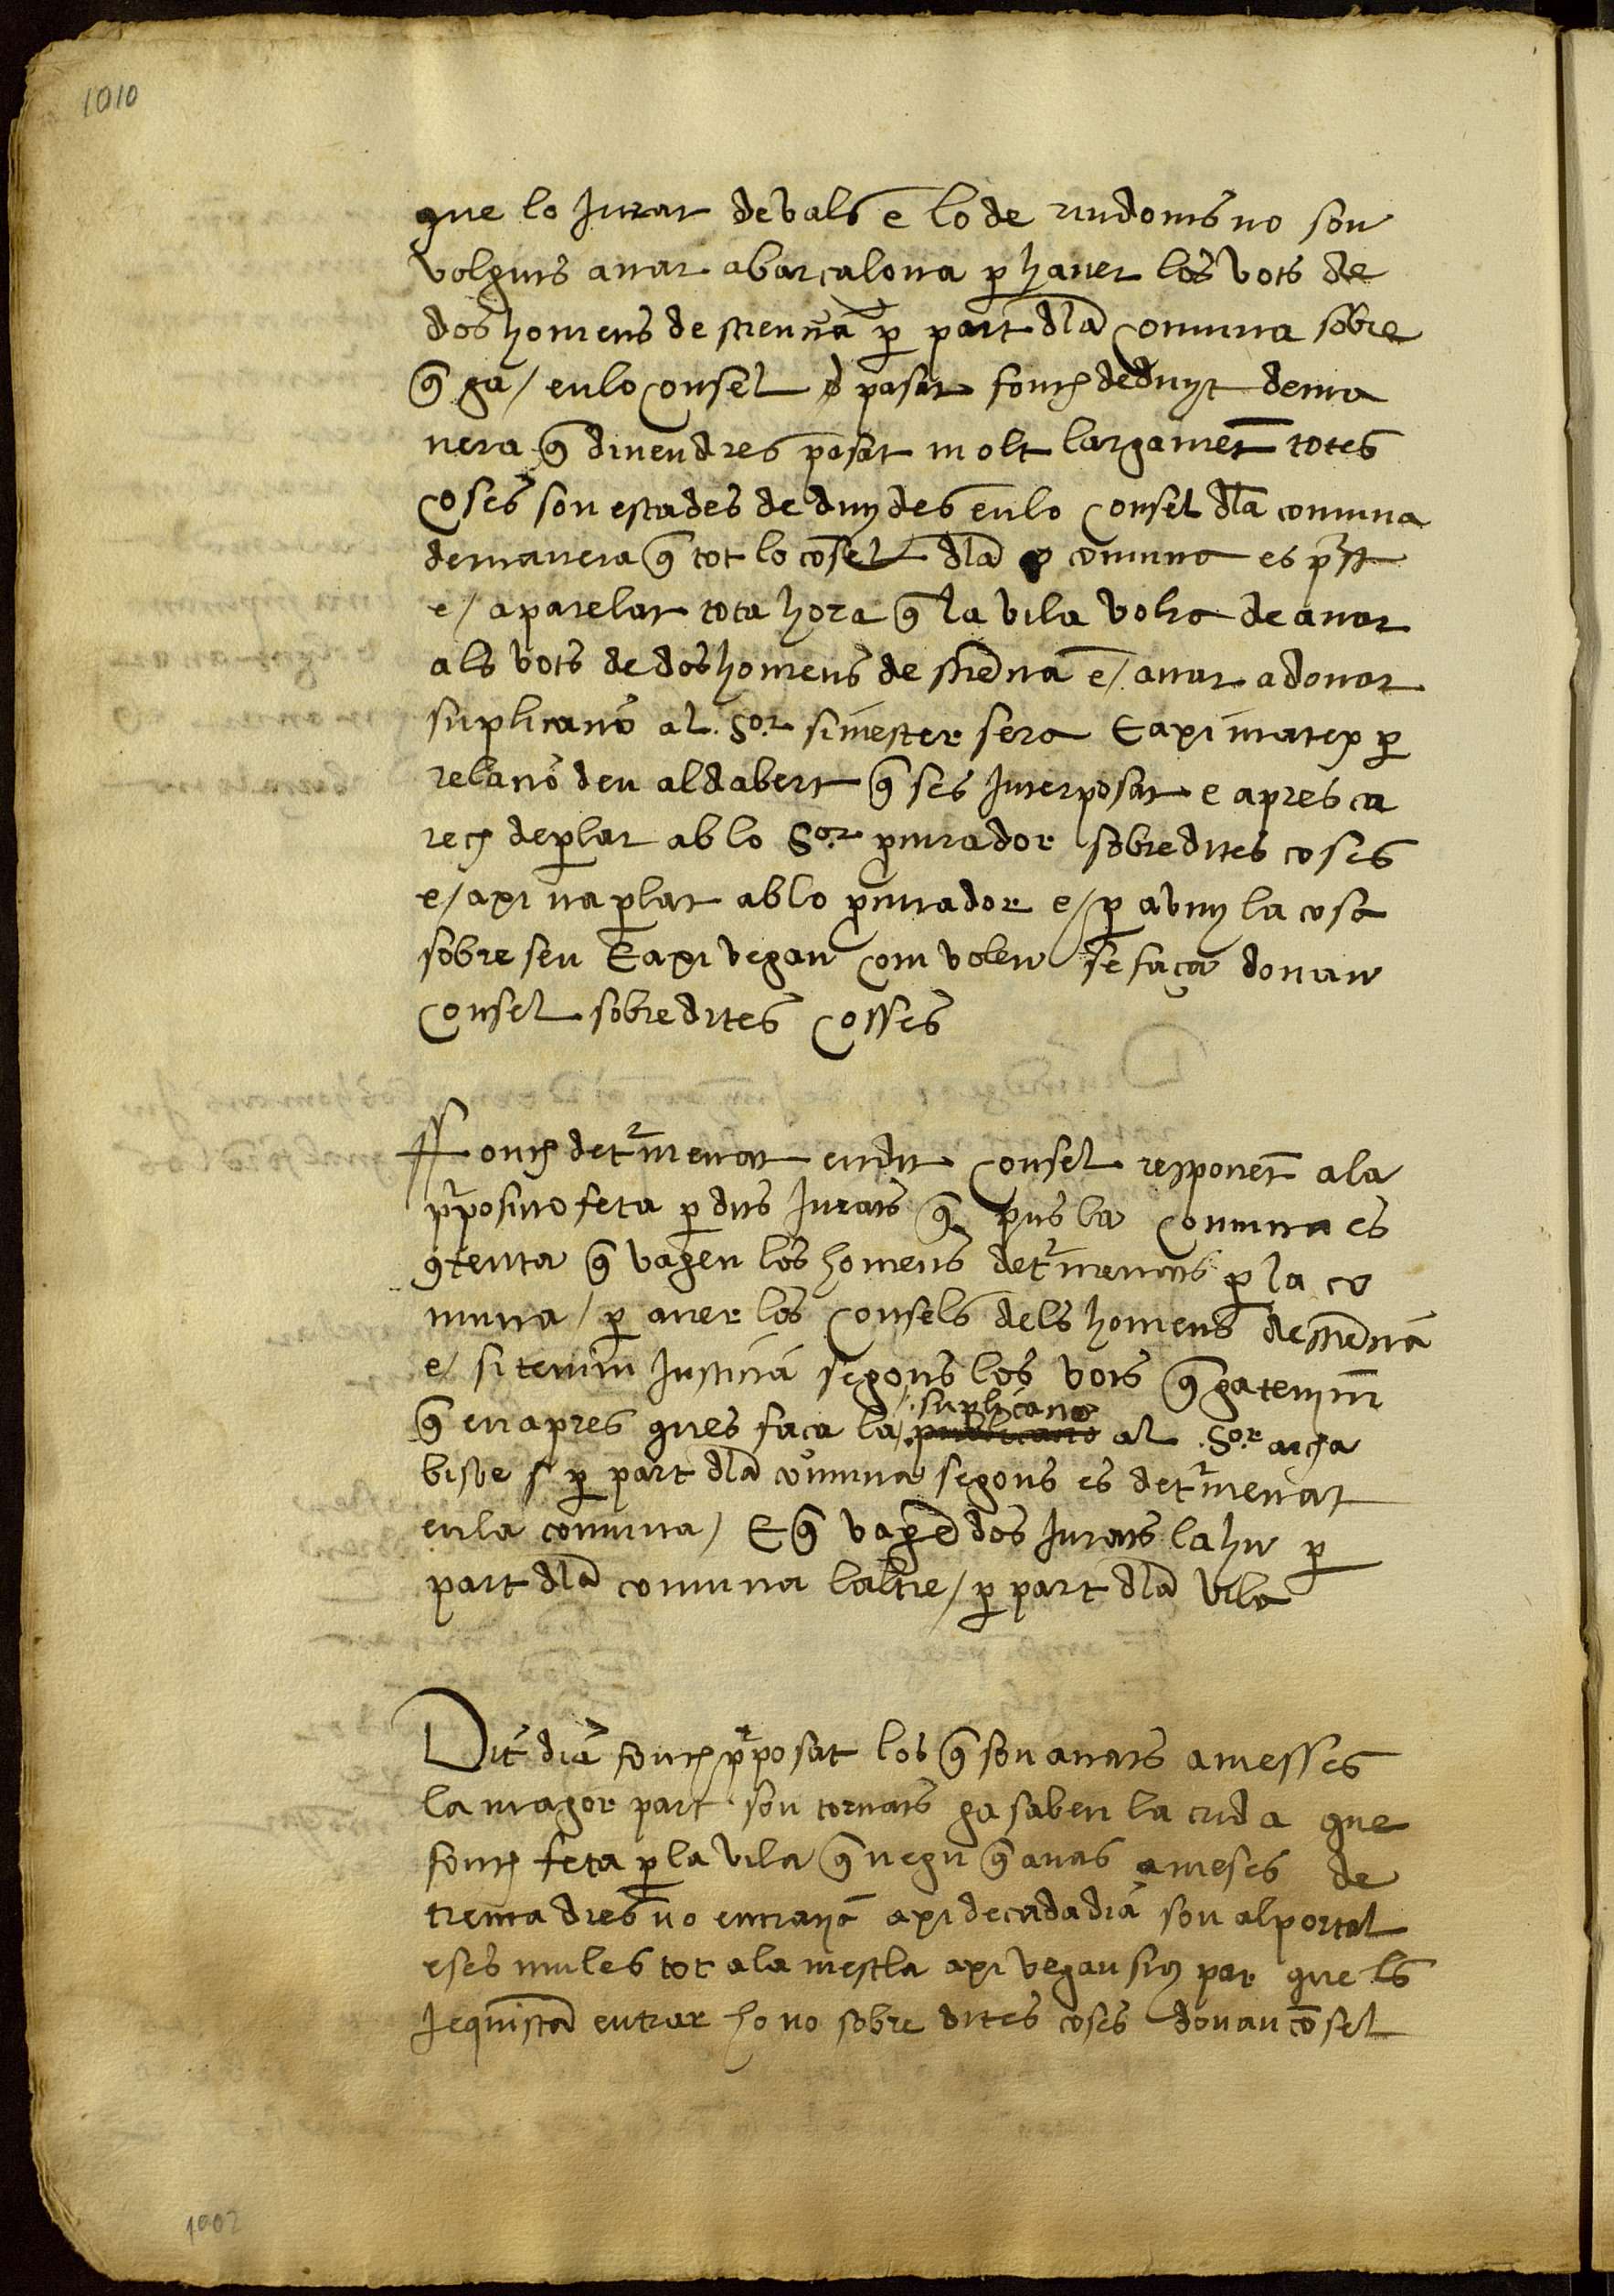 1010
que lo Jurat de vals e lo de riudoms no son
volguts anar a barcalona p haver los vots de
dos homens de sciencia p part dla comuna sobre
q ga / en lo consel d pasat fonch deduyt de ma
nera q divendres pasat molt largamet totes
coses son estades deduydes en lo consel dla comuna
de manera q tot lo cosel dla comuna es prest
e / aparelat tota hora q la vila volra de anar
als vots de dos homens de sciencia e / anar a donar
suplicatio al Sor si mester sera E axi matex p
relatio den aldabert q ses Interposat e apres ca
rech de plar ab lo Sor procurador sobre dites coses
e / axi na plat ab lo procurador e / p avuy la cosa
sobre seu E axi vegau com voleu se faça donau
consel sobre dites cosses
Fonch determenat en dit consel responent a la
proposicio feta p dits Jurats q pus la comuna es
contenta q vagen los homens determenats p la co
muna / p aver los consels dels homens de sciencia
e / si tenim Justicia segons los vots q ga tenim
q en apres ques faca la suplicatio al Sor archa
bisbe p part dla comuna segons es determenat
en la comuna / E q vagen dos Jurats la hu p
part dla comuna laltre / p part dla vila
Dit dia fonch proposat los q son anats a messes
la magor part son tornats ga saben la crida que
fonch feta p la vila q negu q anas a meses de
trenta dies no entraria axi de cada dia son al portal
eses mules tot a la mescla axi vegau sius par quels
Jequiscam entrar ho no sobre dites coses donau cosel
1002